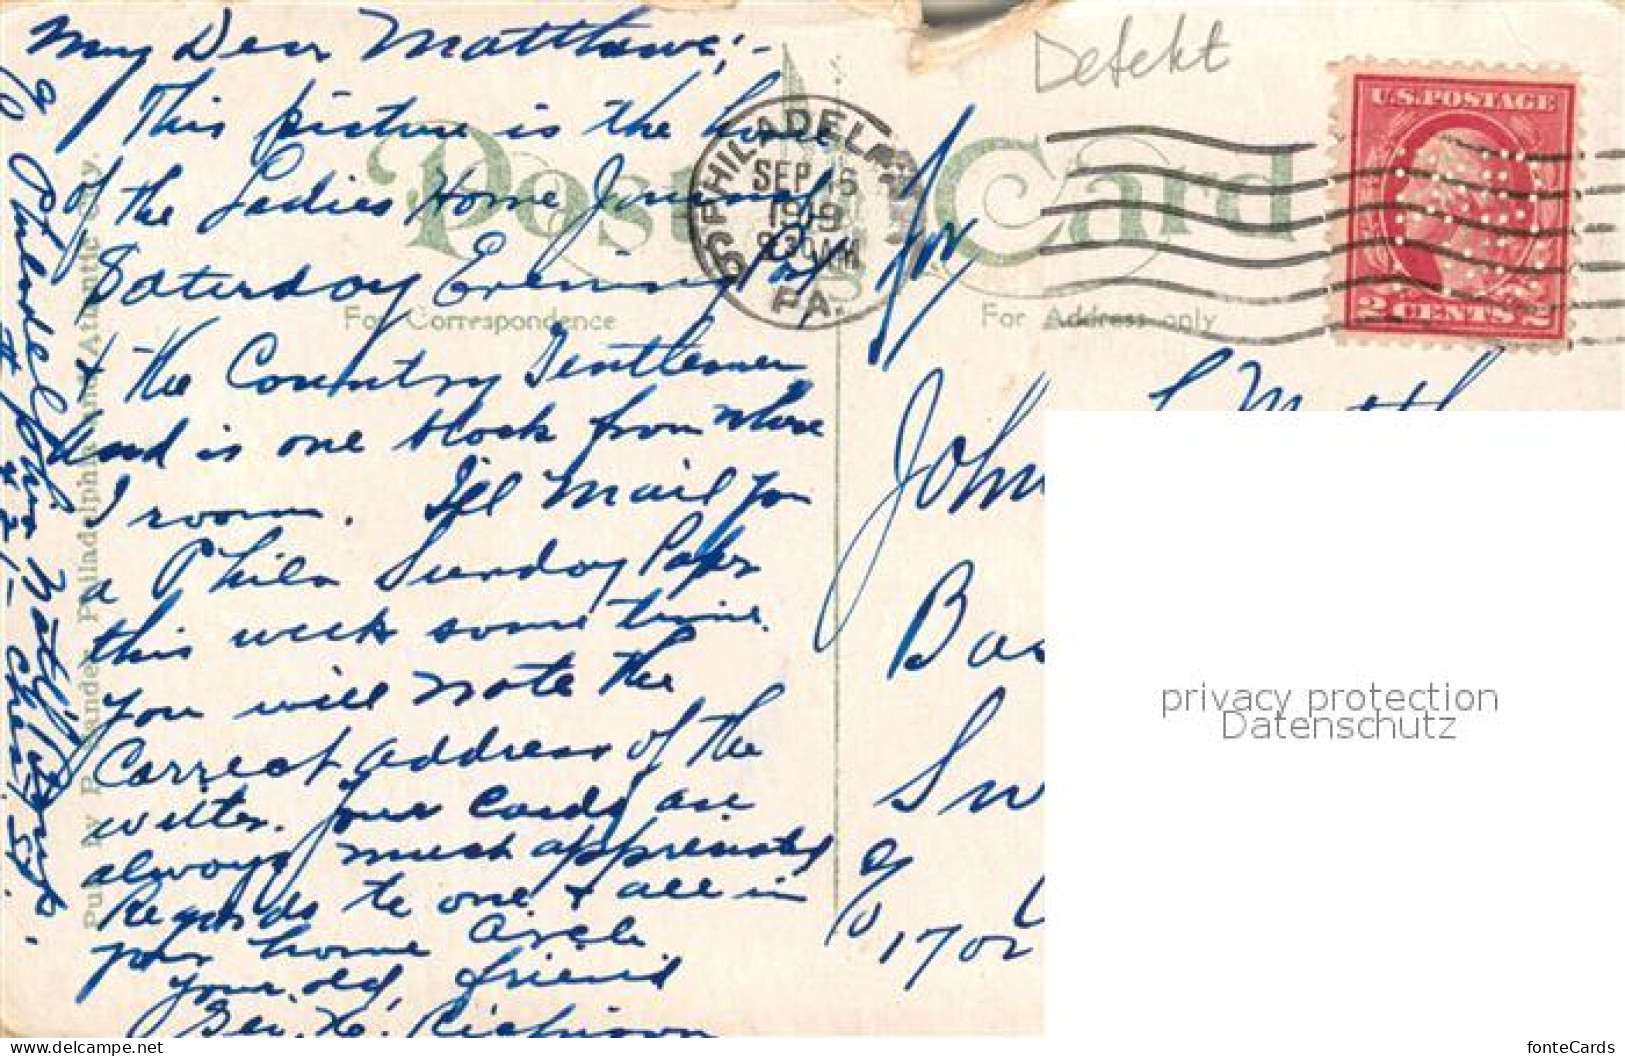 My Dear Matthews;-
This picture is the home
of the Ladies Home Journal
Saturday Evening Post
+ the Country Gentlemen
and is one block from where
I room. I'll mail you
a Phila Sunday Paper
this week some time.
You will note the
Correct address of the
writer. Your cards are
always much appreciated
Regards to one + all in
your home Circle
Your old friend
Geo. H. Richison
c/o Philadelphia National Bank
# 421 - Chest. St.
Post Card
For Correspondence
For Address only
Pub. by P. Sander, Philadelphia and Atlantic City.
PHILADELPHIA
SEP 16
1919
30 AM
PA.
6
Defekt
U.S. POSTAGE
2 CENTS 2
for
John L Matth
Bas
Sw
c/o
1702
privacy protection
Datenschutz
fonteCards
www.delcampe.net